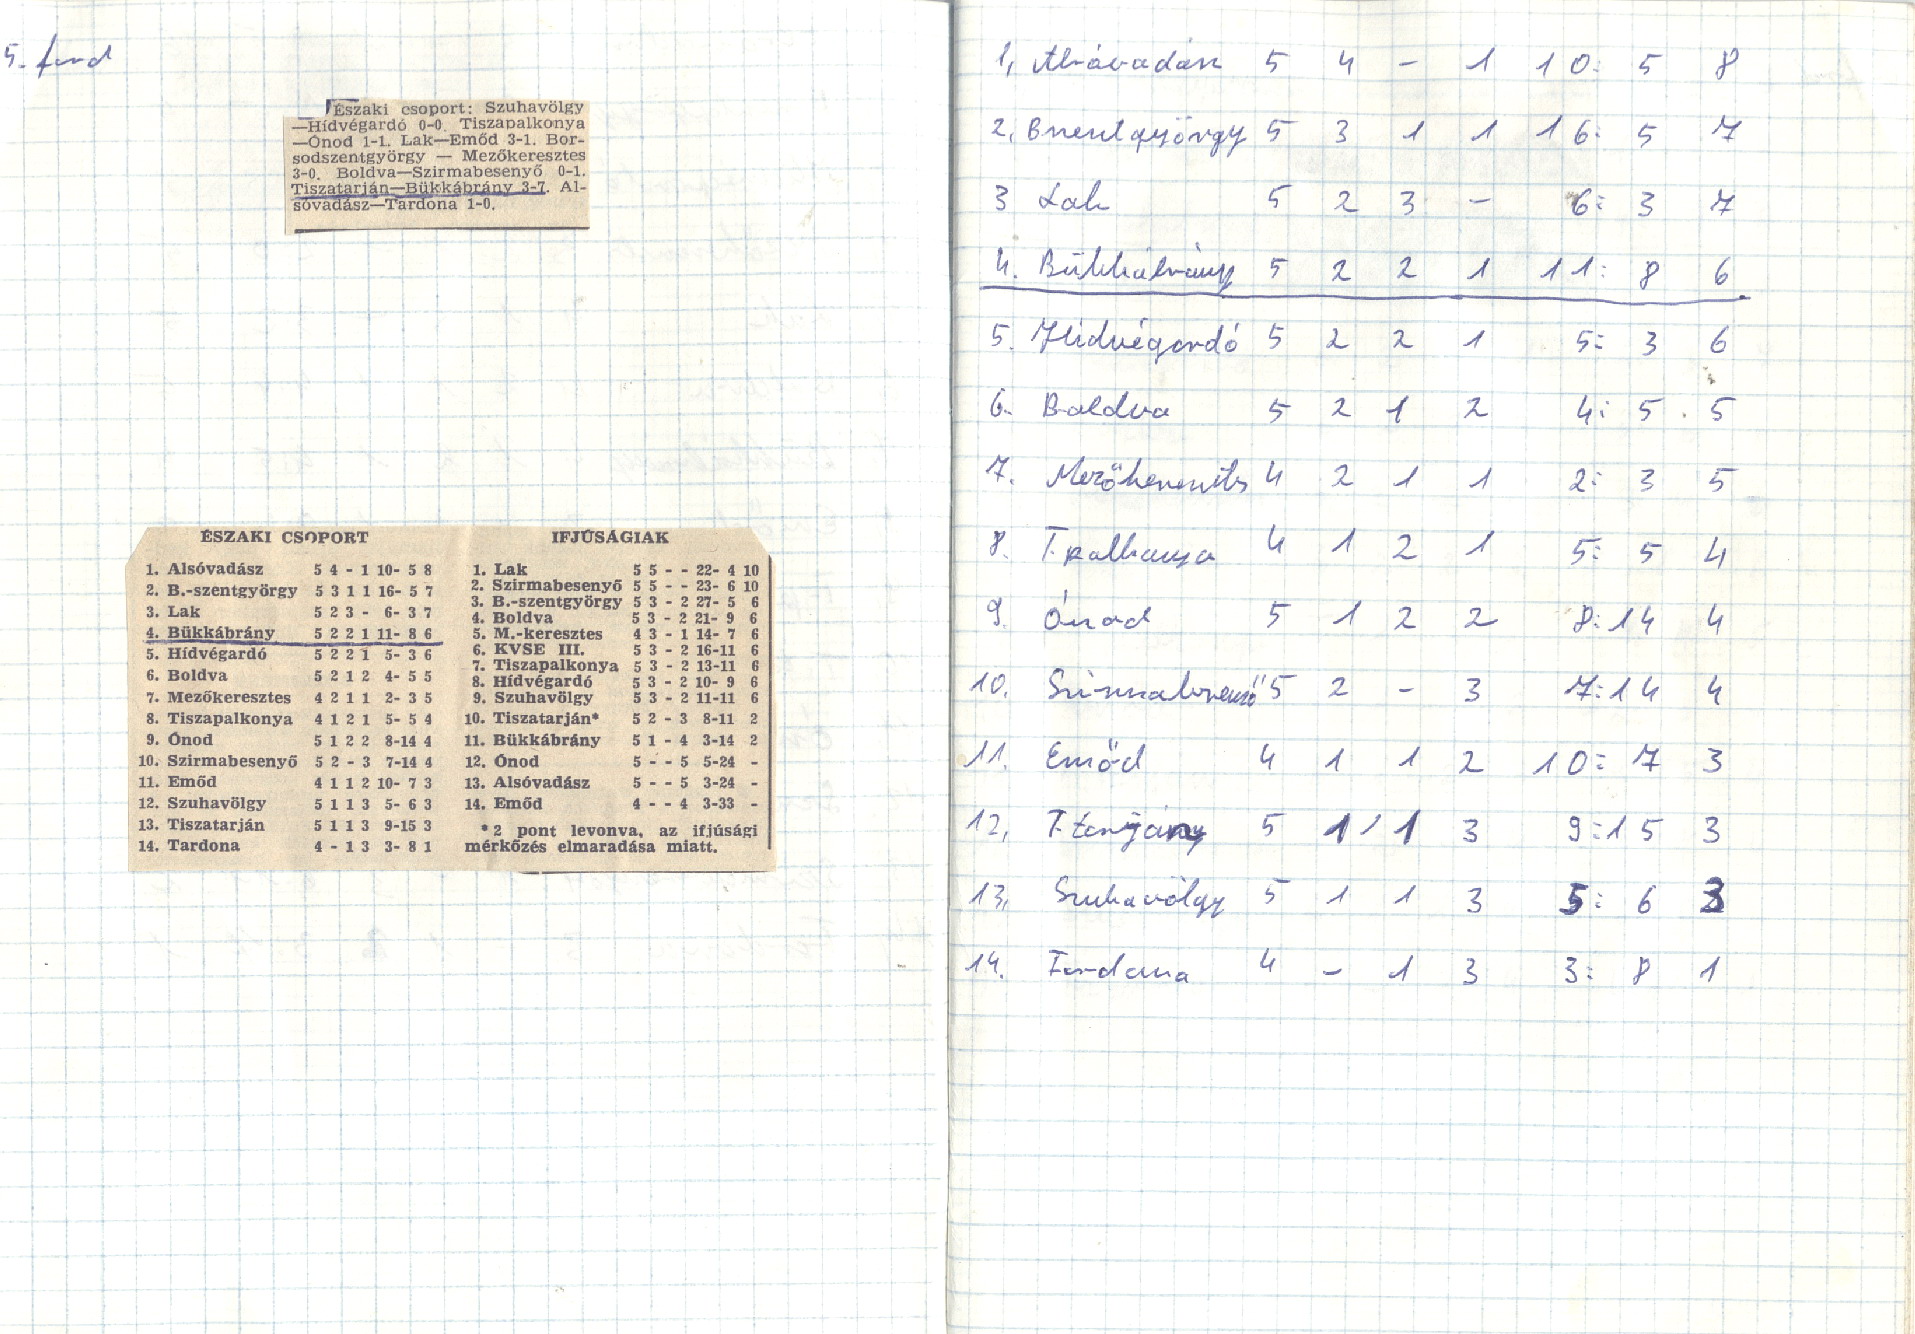 5. ford
Északi csoport: Szuhavölgy
—Hídvégardó 0-0. Tiszapalkonya
—Ónod 1-1. Lak—Emőd 3-1. Bor-
sodszentgyörgy — Mezőkeresztes
3-0. Boldva—Szirmabesenyő 0-1.
Tiszatarján—Bükkábrány 3-7. Al-
sóvadász—Tardona 1-0.
ÉSZAKI CSOPORT
1. Alsóvadász 5 4 - 1 10- 5 8
2. B.-szentgyörgy 5 3 1 1 16- 5 7
3. Lak 5 2 3 - 6- 3 7
4. Bükkábrány 5 2 2 1 11- 8 6
5. Hídvégardó 5 2 2 1 5- 3 6
6. Boldva 5 2 1 2 4- 5 5
7. Mezőkeresztes 4 2 1 1 2- 3 5
8. Tiszapalkonya 4 1 2 1 5- 5 4
9. Ónod 5 1 2 2 8-14 4
10. Szirmabesenyő 5 2 - 3 7-14 4
11. Emőd 4 1 1 2 10- 7 3
12. Szuhavölgy 5 1 1 3 5- 6 3
13. Tiszatarján 5 1 1 3 9-15 3
14. Tardona 4 - 1 3 3- 8 1
IFJÚSÁGIAK
1. Lak 5 5 - - 22- 4 10
2. Szirmabesenyő 5 5 - - 23- 6 10
3. B.-szentgyörgy 5 3 - 2 27- 5 6
4. Boldva 5 3 - 2 21- 9 6
5. M.-keresztes 4 3 - 1 14- 7 6
6. KVSE III. 5 3 - 2 16-11 6
7. Tiszapalkonya 5 3 - 2 13-11 6
8. Hídvégardó 5 3 - 2 10- 9 6
9. Szuhavölgy 5 3 - 2 11-11 6
10. Tiszatarján* 5 2 - 3 8-11 2
11. Bükkábrány 5 1 - 4 3-14 2
12. Ónod 5 - - 5 5-24 -
13. Alsóvadász 5 - - 5 3-24 -
14. Emőd 4 - - 4 3-33 -
*2 pont levonva, az ifjúsági
mérkőzés elmaradása miatt.
1, Alsóvadász 5 4 - 1 10: 5 8
2, Bszentgyörgy 5 3 1 1 16: 5 7
3 Lak 5 2 3 - 6: 3 7
4. Bükkábrány 5 2 2 1 11: 8 6
5. Hidvégardó 5 2 2 1 5: 3 6
6. Boldva 5 2 1 2 4: 5 . 5
7. Mezőkeresztes 4 2 1 1 2: 3 5
8. T. palkonya 4 1 2 1 5: 5 4
9. Ónod 5 1 2 2 8:14 4
10. Szirmabesenyő 5 2 - 3 7:14 4
11. Emőd 4 1 1 2 10: 7 3
12, T. tarjány 5 1 / 1 3 9:15 3
13, Szuhavölgy 5 1 1 3 5: 6 3
14. Tardona 4 - 1 3 3: 8 1